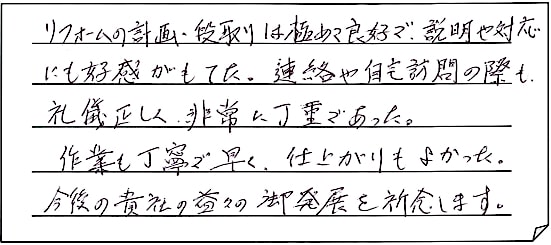 リフォームの計画・段取りは極めて良好で、説明や対応
にも好感がもてた。連絡や自宅訪問の際も、
礼儀正しく、非常に丁重であった。
作業も丁寧で早く、仕上がりもよかった。
今後の貴社の益々の御発展を祈念します。